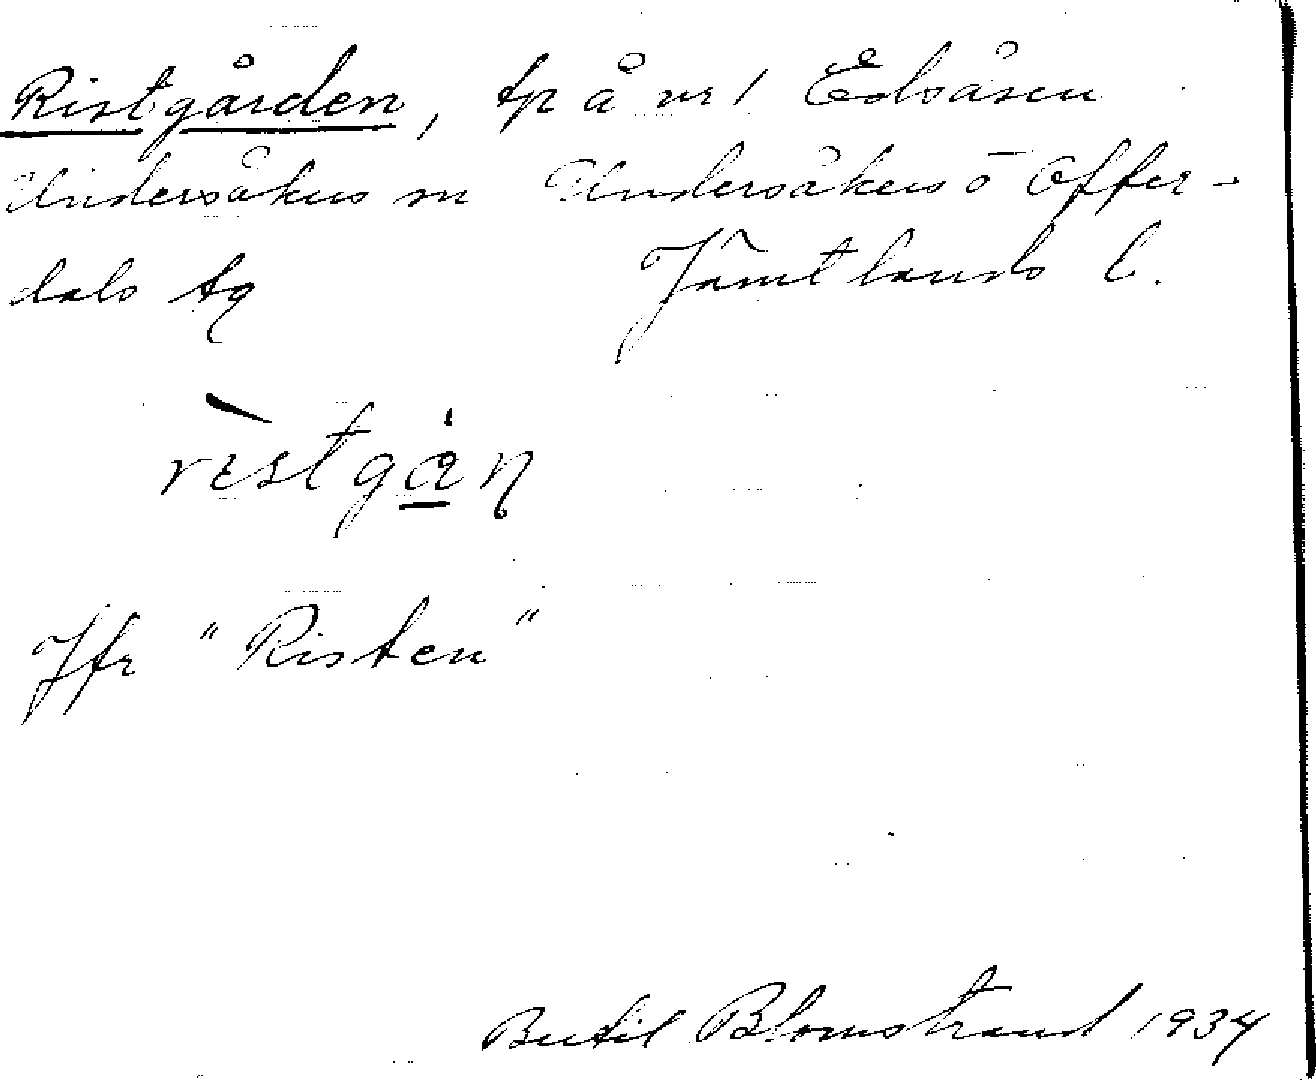 Ristgården, tp å nr 1 Edsåsen
Undersåkers sn Undersåkers o Offer-
dals tg Jämtlands l.
rìstgån
Jfr "Risten"
Bertil Blomstrand 1934